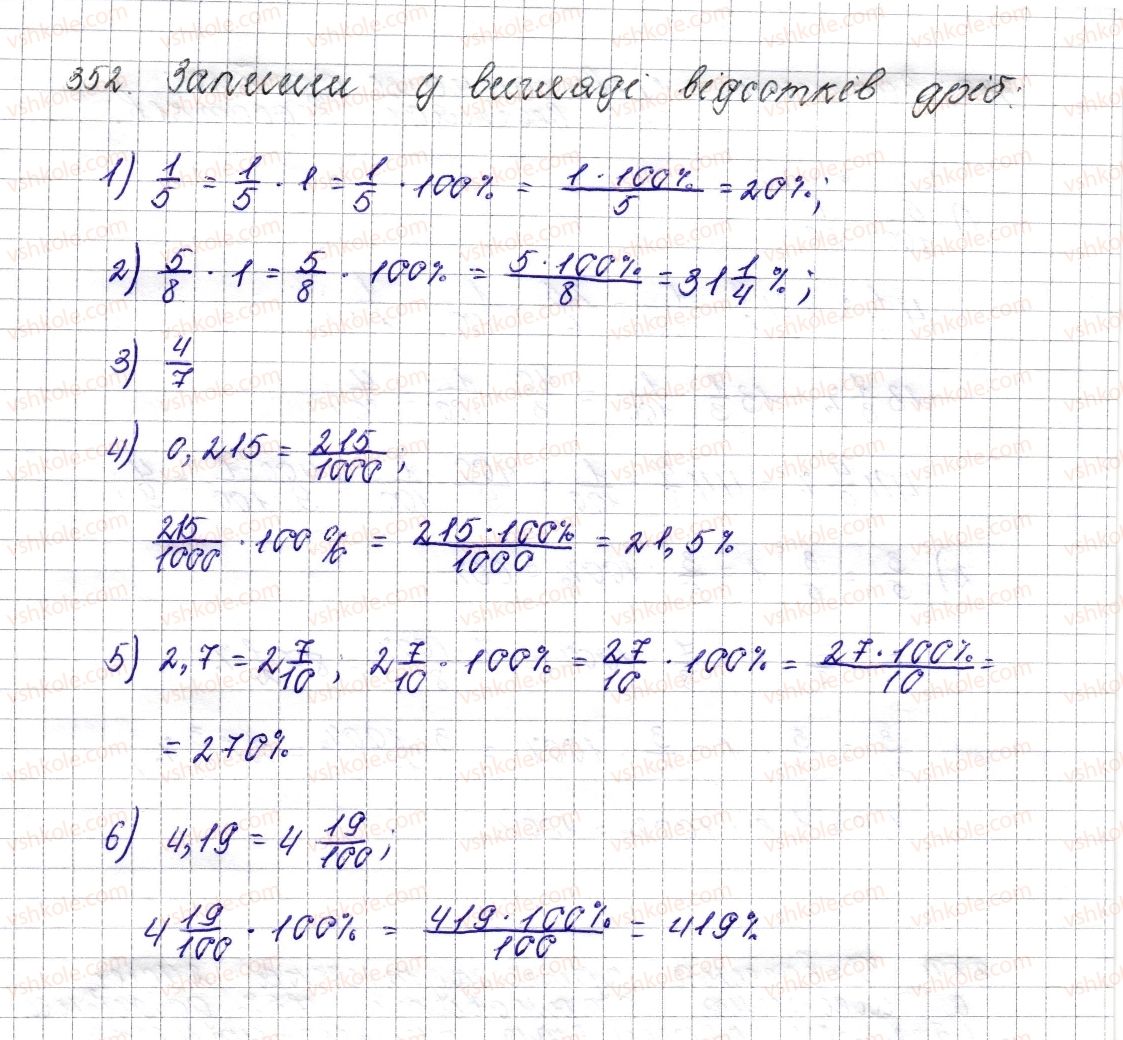 352. Запиши у вигляді відсотків дріб:
1) 1/5 = 1/5 · 1 = 1/5 · 100% = 1 · 100%/5 = 20%;
2) 5/8 · 1 = 5/8 · 100% = 5 · 100%/8 = 31 1/4 %;
3) 4/7
4) 0,215 = 215/1000;
215/1000 · 100% = 215 · 100%/1000 = 21,5%
5) 2,7 = 2 7/10; 2 7/10 · 100% = 27/10 · 100% = 27 · 100%/10 =
= 270%
6) 4,19 = 4 19/100;
4 19/100 · 100% = 419 · 100%/100 = 419%